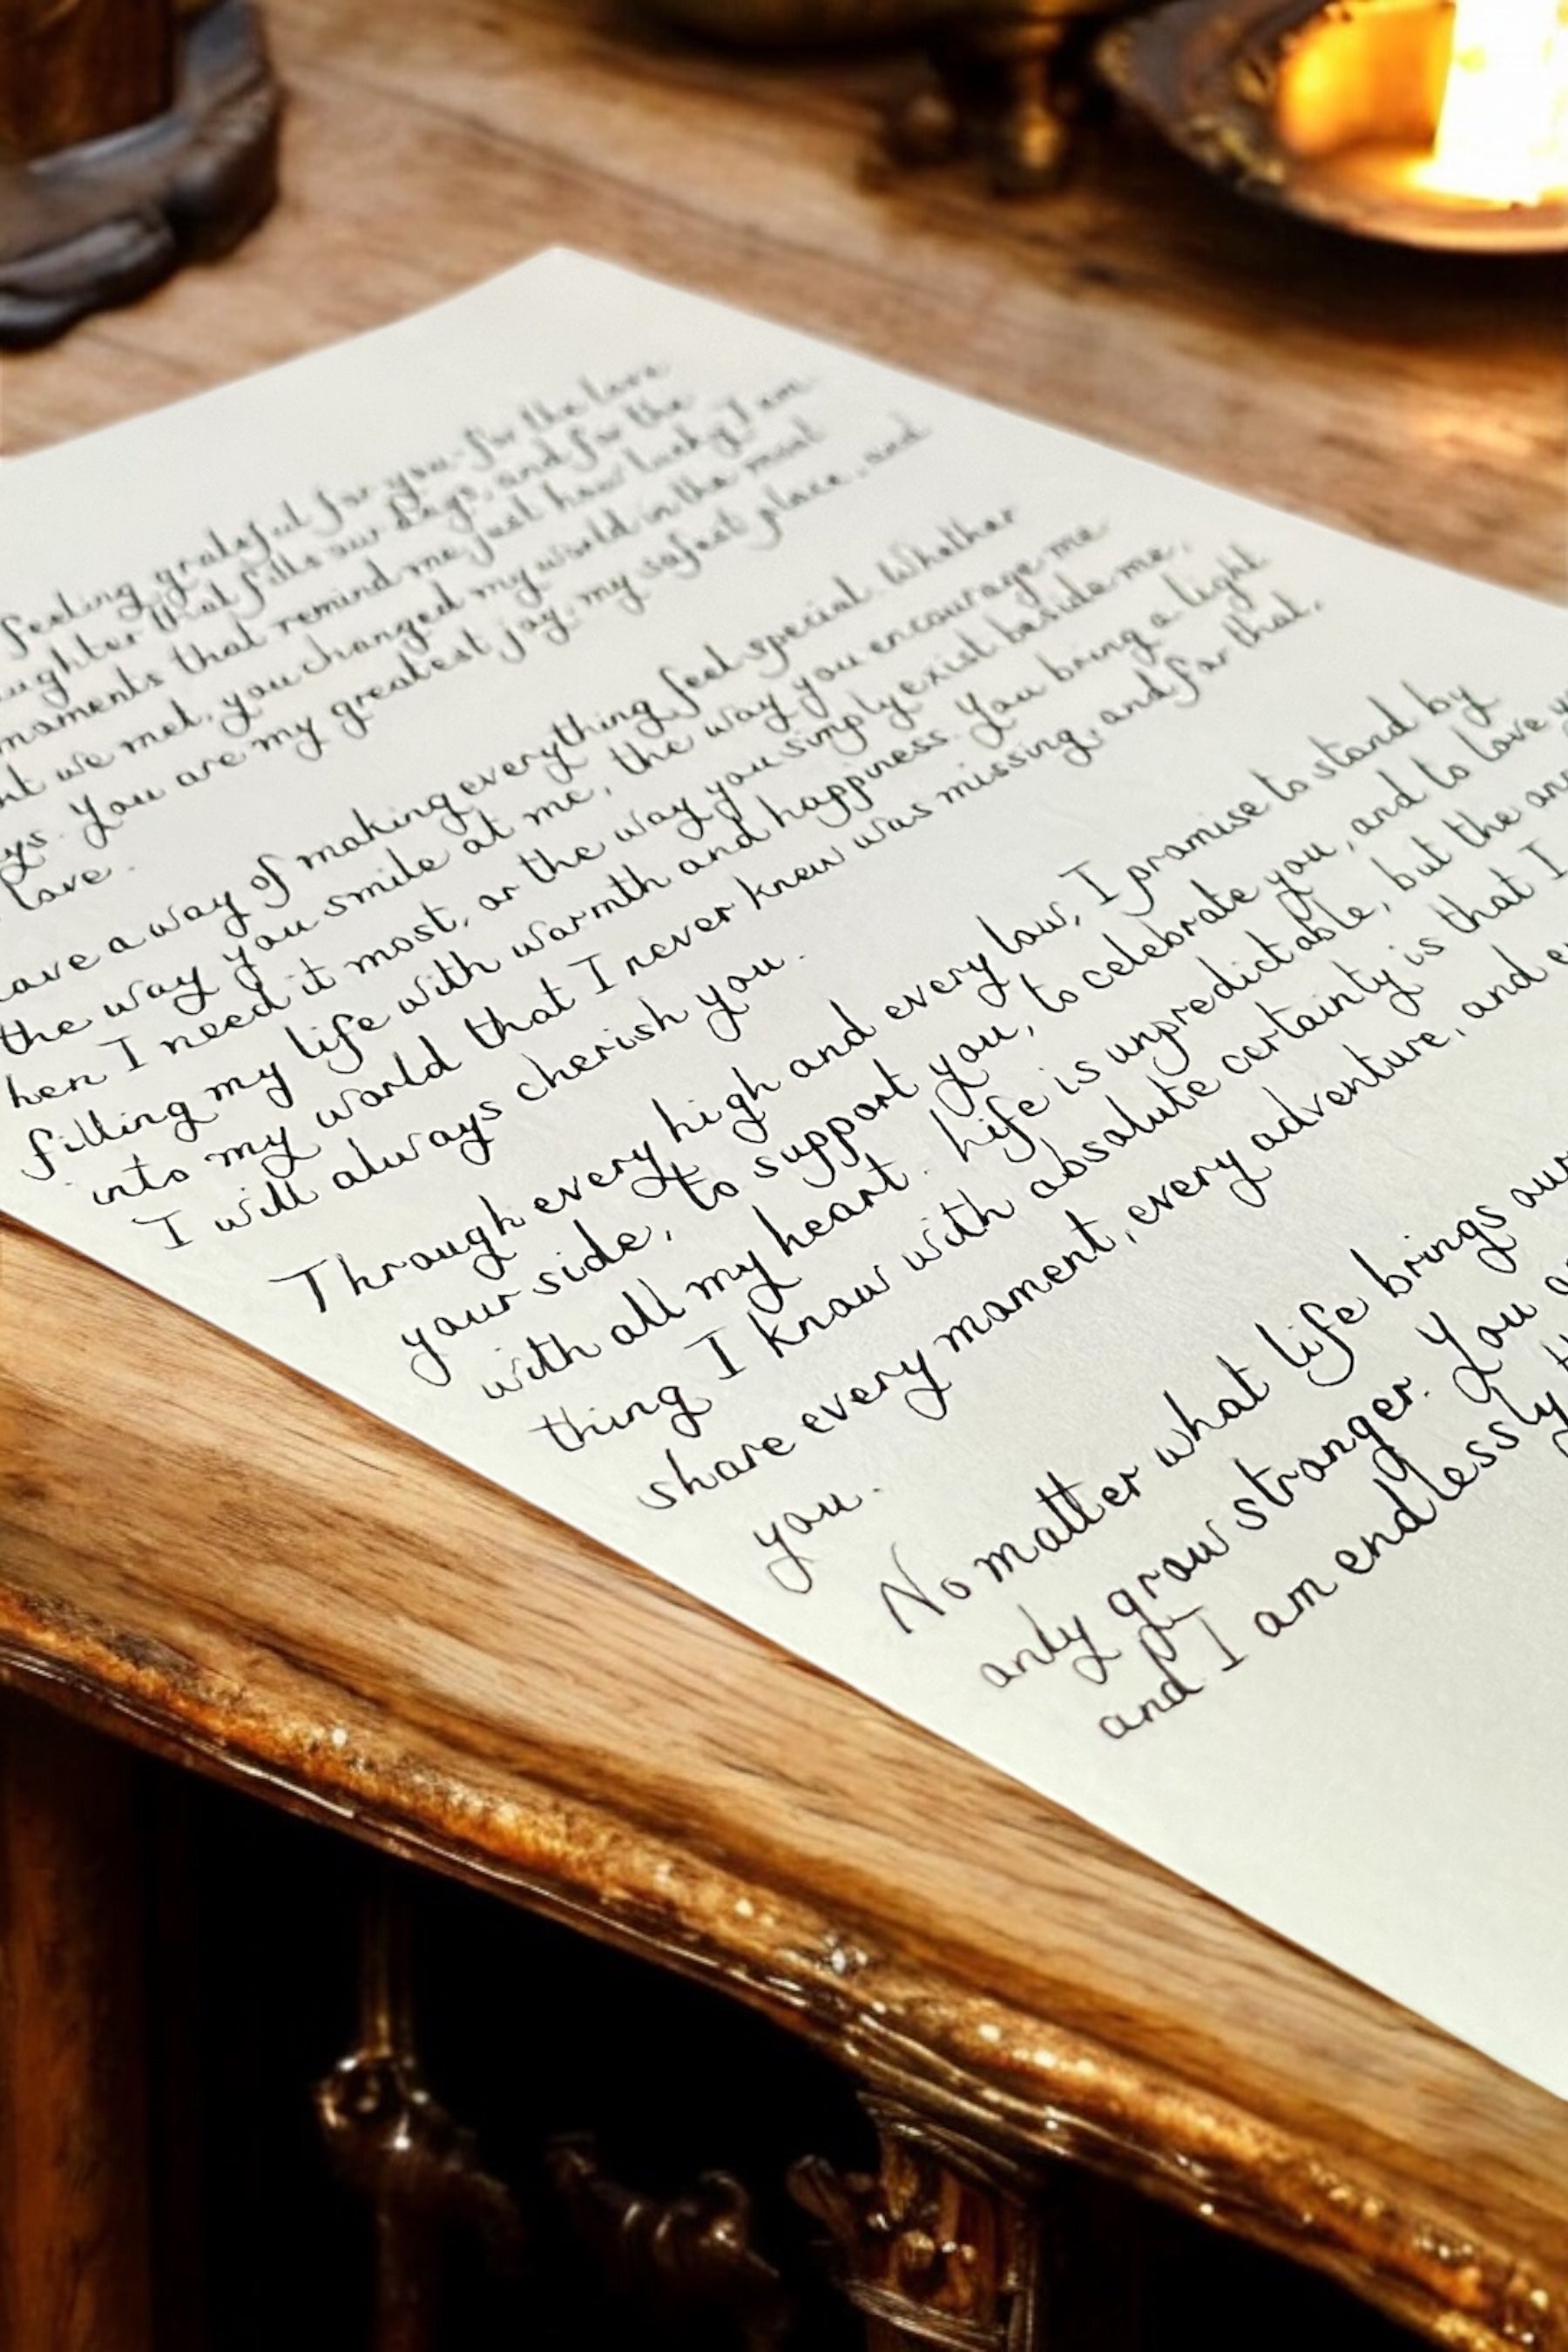 feeling grateful for you-for the love
that fills our days, and for the
moments that remind me just how lucky I am
we met, you changed my world in the most
You are my greatest joy, my safest place, and
love.
a way of making everything feel special. Whether
the way you smile at me, the way you encourage me
I need it most, or the way you simply exist beside me,
filling my life with warmth and happiness. You bring a light
into my world that I never knew was missing, and for that,
I will always cherish you.
Through every high and every low, I promise to stand by
your side, to support you, to celebrate you, and to love
with all my heart. Life is unpredictable, but the
thing I know with absolute certainty is that I
share every moment, every adventure, and
you.
No matter what life brings
only grow stronger. You
and I am endlessly